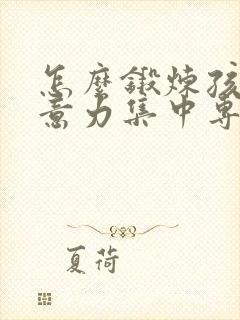 怎麼鍛煉孩
意力集中專
夏荷